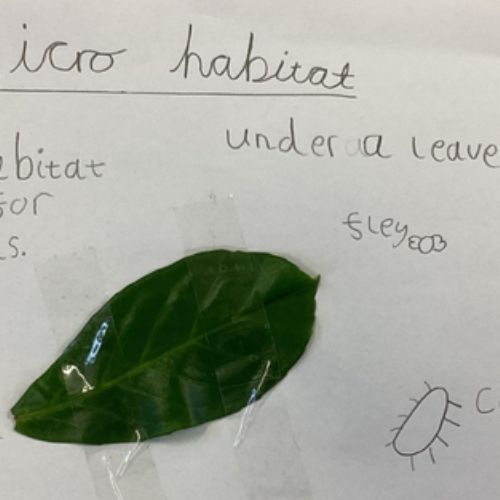 icro habitat
under a leave
ebitat
for
s.
fley
C